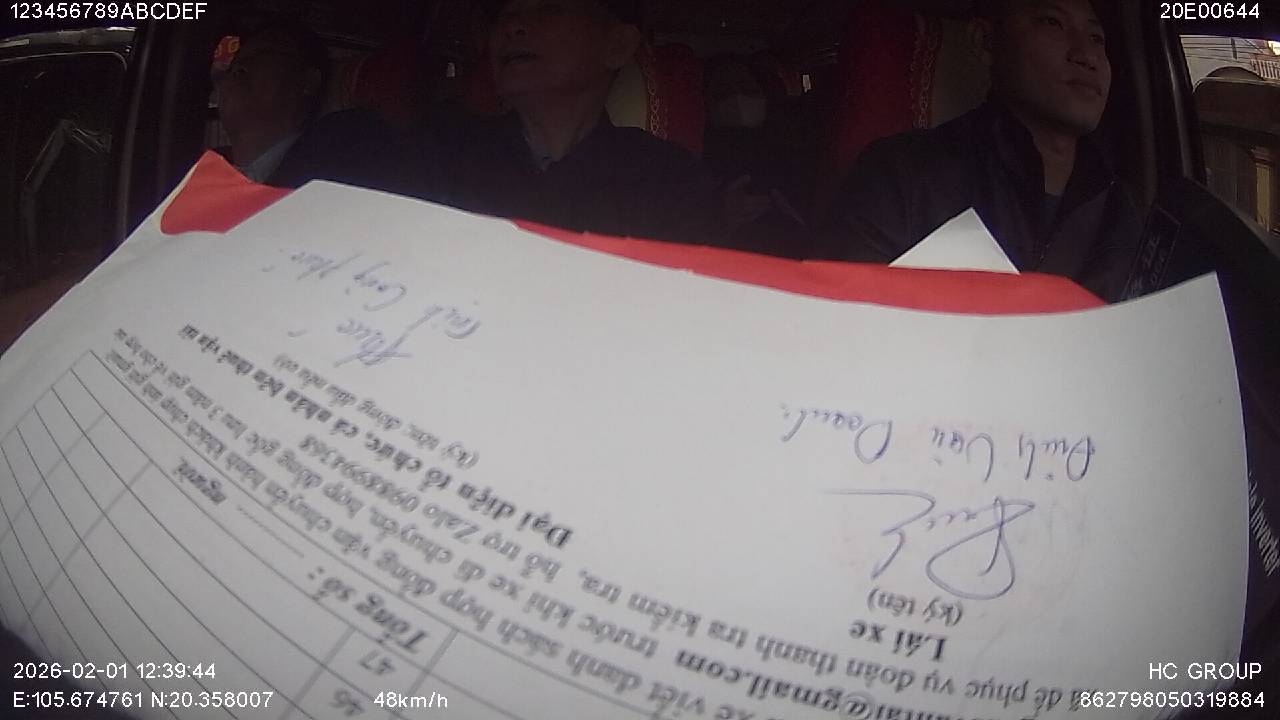 123456789ABCDEF
20E00644
46
47
Tổng số :
người
xe viết danh sách hợp đồng vận chuyển hành khách chụp ảnh gửi gmail
@gmail.com trước khi xe di chuyển, hợp đồng gốc lưu 3 năm
để phục vụ đoàn thanh tra kiểm tra, hỗ trợ Zalo 0988994368
Đại diện tổ chức, cá nhân bên thuê vận tải
(ký tên, đóng dấu nếu có)
Lái xe
(ký tên)
Đinh Văn
2026-02-01 12:39:44
E:105.674761 N:20.358007
48km/h
HC GROUP
862798050319884